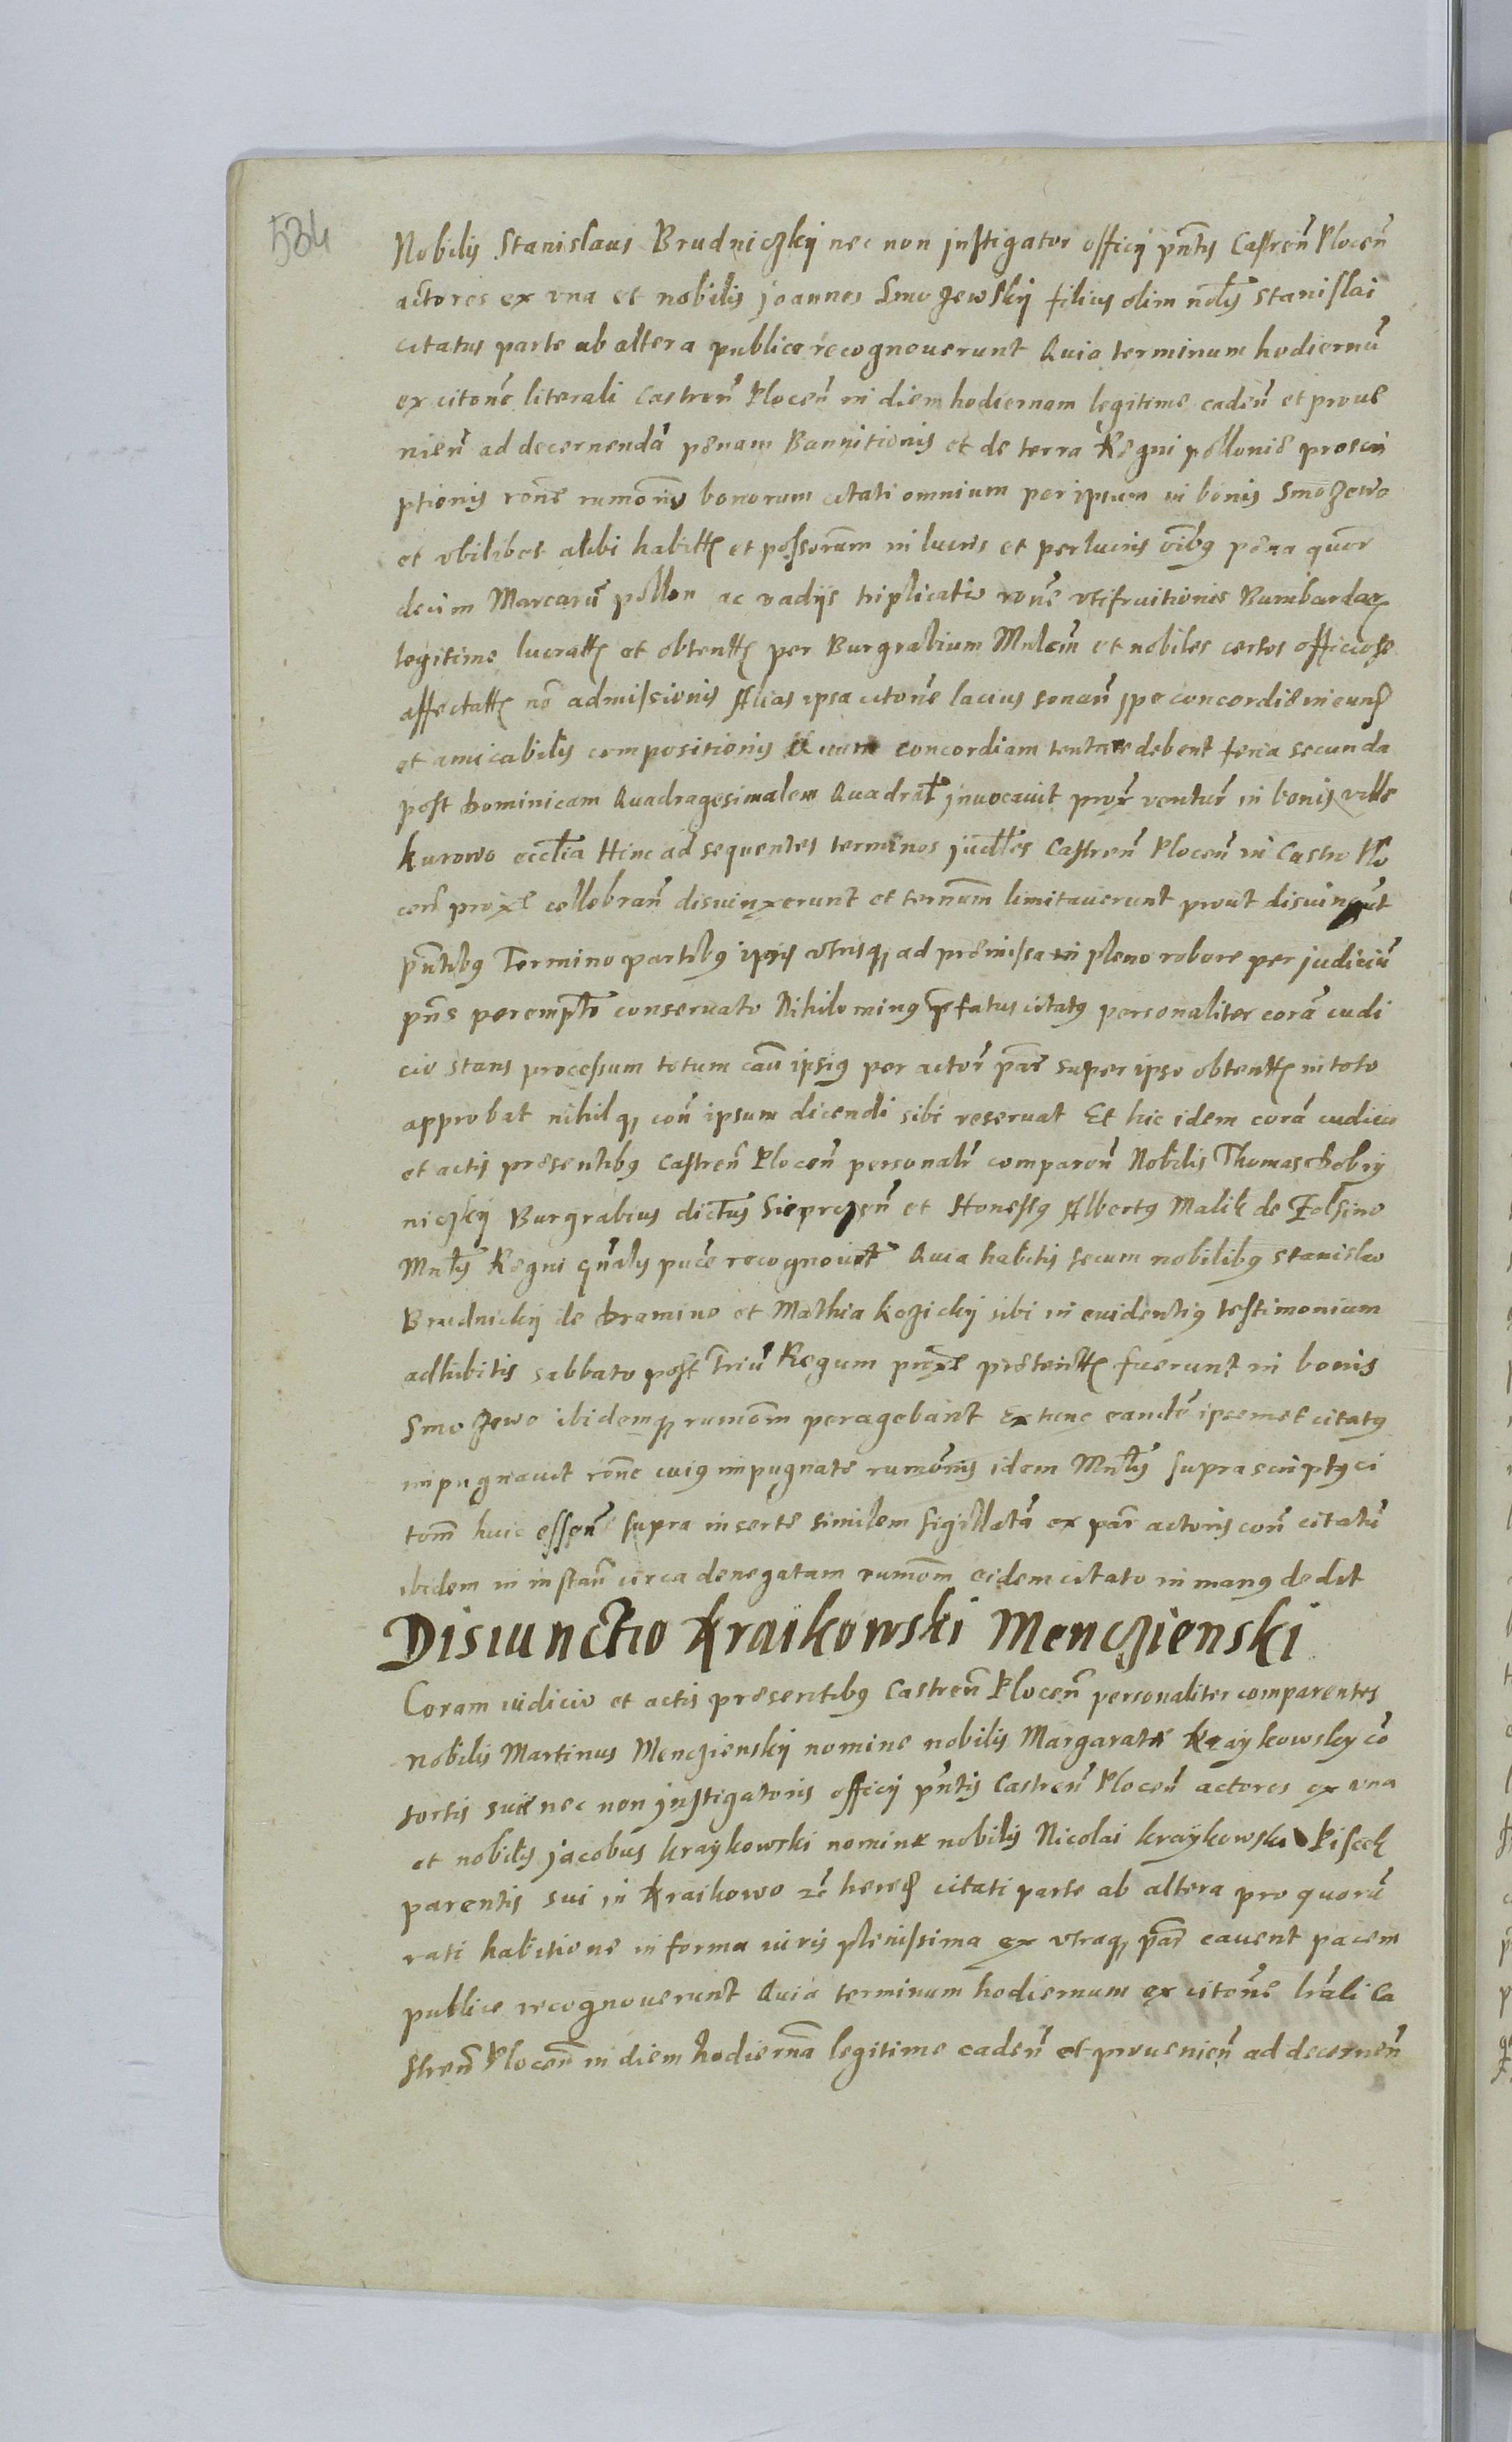 534
Nobilis Stanislaus Brudniczkij nec non jnstigator officij pñtis Castreñ Ploceñ
actores ex vna et nobilis joannes Smozewskij filius olim nolis stanislai
citatus parte ab altera publice recognouerunt Quia terminum hodiernū
ex citoñe literali Castreñ Ploceñ in diem hodiernam legitime cadeñ et proue
nieñ ad decernendā penam Bannitionis et de terra Regni pollonie proscri
ptionis roñe rumoñis bonorum citati omnium per ipsum in bonis Smozewo
et vbilibet alibi habitt et possorum in lucris et perlucris oibq pena quor
decim Marcarū pollon ac vadijs triplicatis roñe vtifruitionis Bumbardar
legitime lucratt et obtentt per Burgrabium Mnlem et nobiles certos officiose
affectatt nō admissionis Alias ipsa citoñe lacius sonañ spe concordie ineund
et amicabilis compositionis Quum concordiam tentare debent feria secunda
post Dominicam Quadragesimalem Quadrãl jnuocauit prox ventur in bonis ville
kurowo ecclia Hinc ad sequentes terminos judlles Castreñ Ploceñ in Castro Plo
ceñ proxe cellebrañ disiunxerunt et ternum limitauerunt prout disiungūt
pñtibq Termino partibq ipis vtrisq ad premissa in pleno robore per judiciū
pñs perempto conseruato Nihilominq prefatus citatq personaliter corā iudi
cio stans processum totum cau ipsiq per actor par super ipso obtentt in toto
approbat nihilq coñ ipsum dicendi sibi reseruat Et hic idem corā iudicio
et actis presentibq Castreñ Ploceñ personalr compareñ Nobilis Thomas Dobrij
niczkij Burgrabius dictus Sieprczeñ et Honestq Albertq Malik de Zelsino
Mnlis Regni gnalis puce recognouit Quia habitis secum nobilibq stanislao
Brudnickij de Dramino et Mathia kozickij sibi in euidentiq testimonium
adhibitis sabbato post Triū Regum proxe pretentt fuerunt in bonis
Smozewo ibidemq rumom peragebant Ex tunc eandē ipsemet citatq
impugnauit roñe cuiq impugnate rumonis idem Mnlis supra scriptq ci
tom huic esseñ supra inserte similem sigillatā ex par actoris coñ citatū
ibidem in instañ circa denegatam rumom eidem citato in manq dedit
Disiunctio Kraikowski Menczienski
Coram iudicio et actis presentibq Castreñ Ploceñ personaliter comparentes
nobilis Martinus Menczienskij nomine nobilis Margarate kraykowsky cō
sortis sue nec non jnstigatoris officij pñtis Castreñ Ploceñ actores ex vna
et nobilis jacobus kraykowski nomine nobilis Nicolai kraykowski Piscek
parentis sui in Kraikowo zē hered citati parte ab altera pro quorū
rati habitione in forma iuris plenissima ex vtraq par cauent pacem
publice recognouerunt Quia terminum hodiernum ex citoñe lrali Ca
streñ Ploceñ in diem hodiernā legitime cadeñ et prouenieñ ad decerneñ